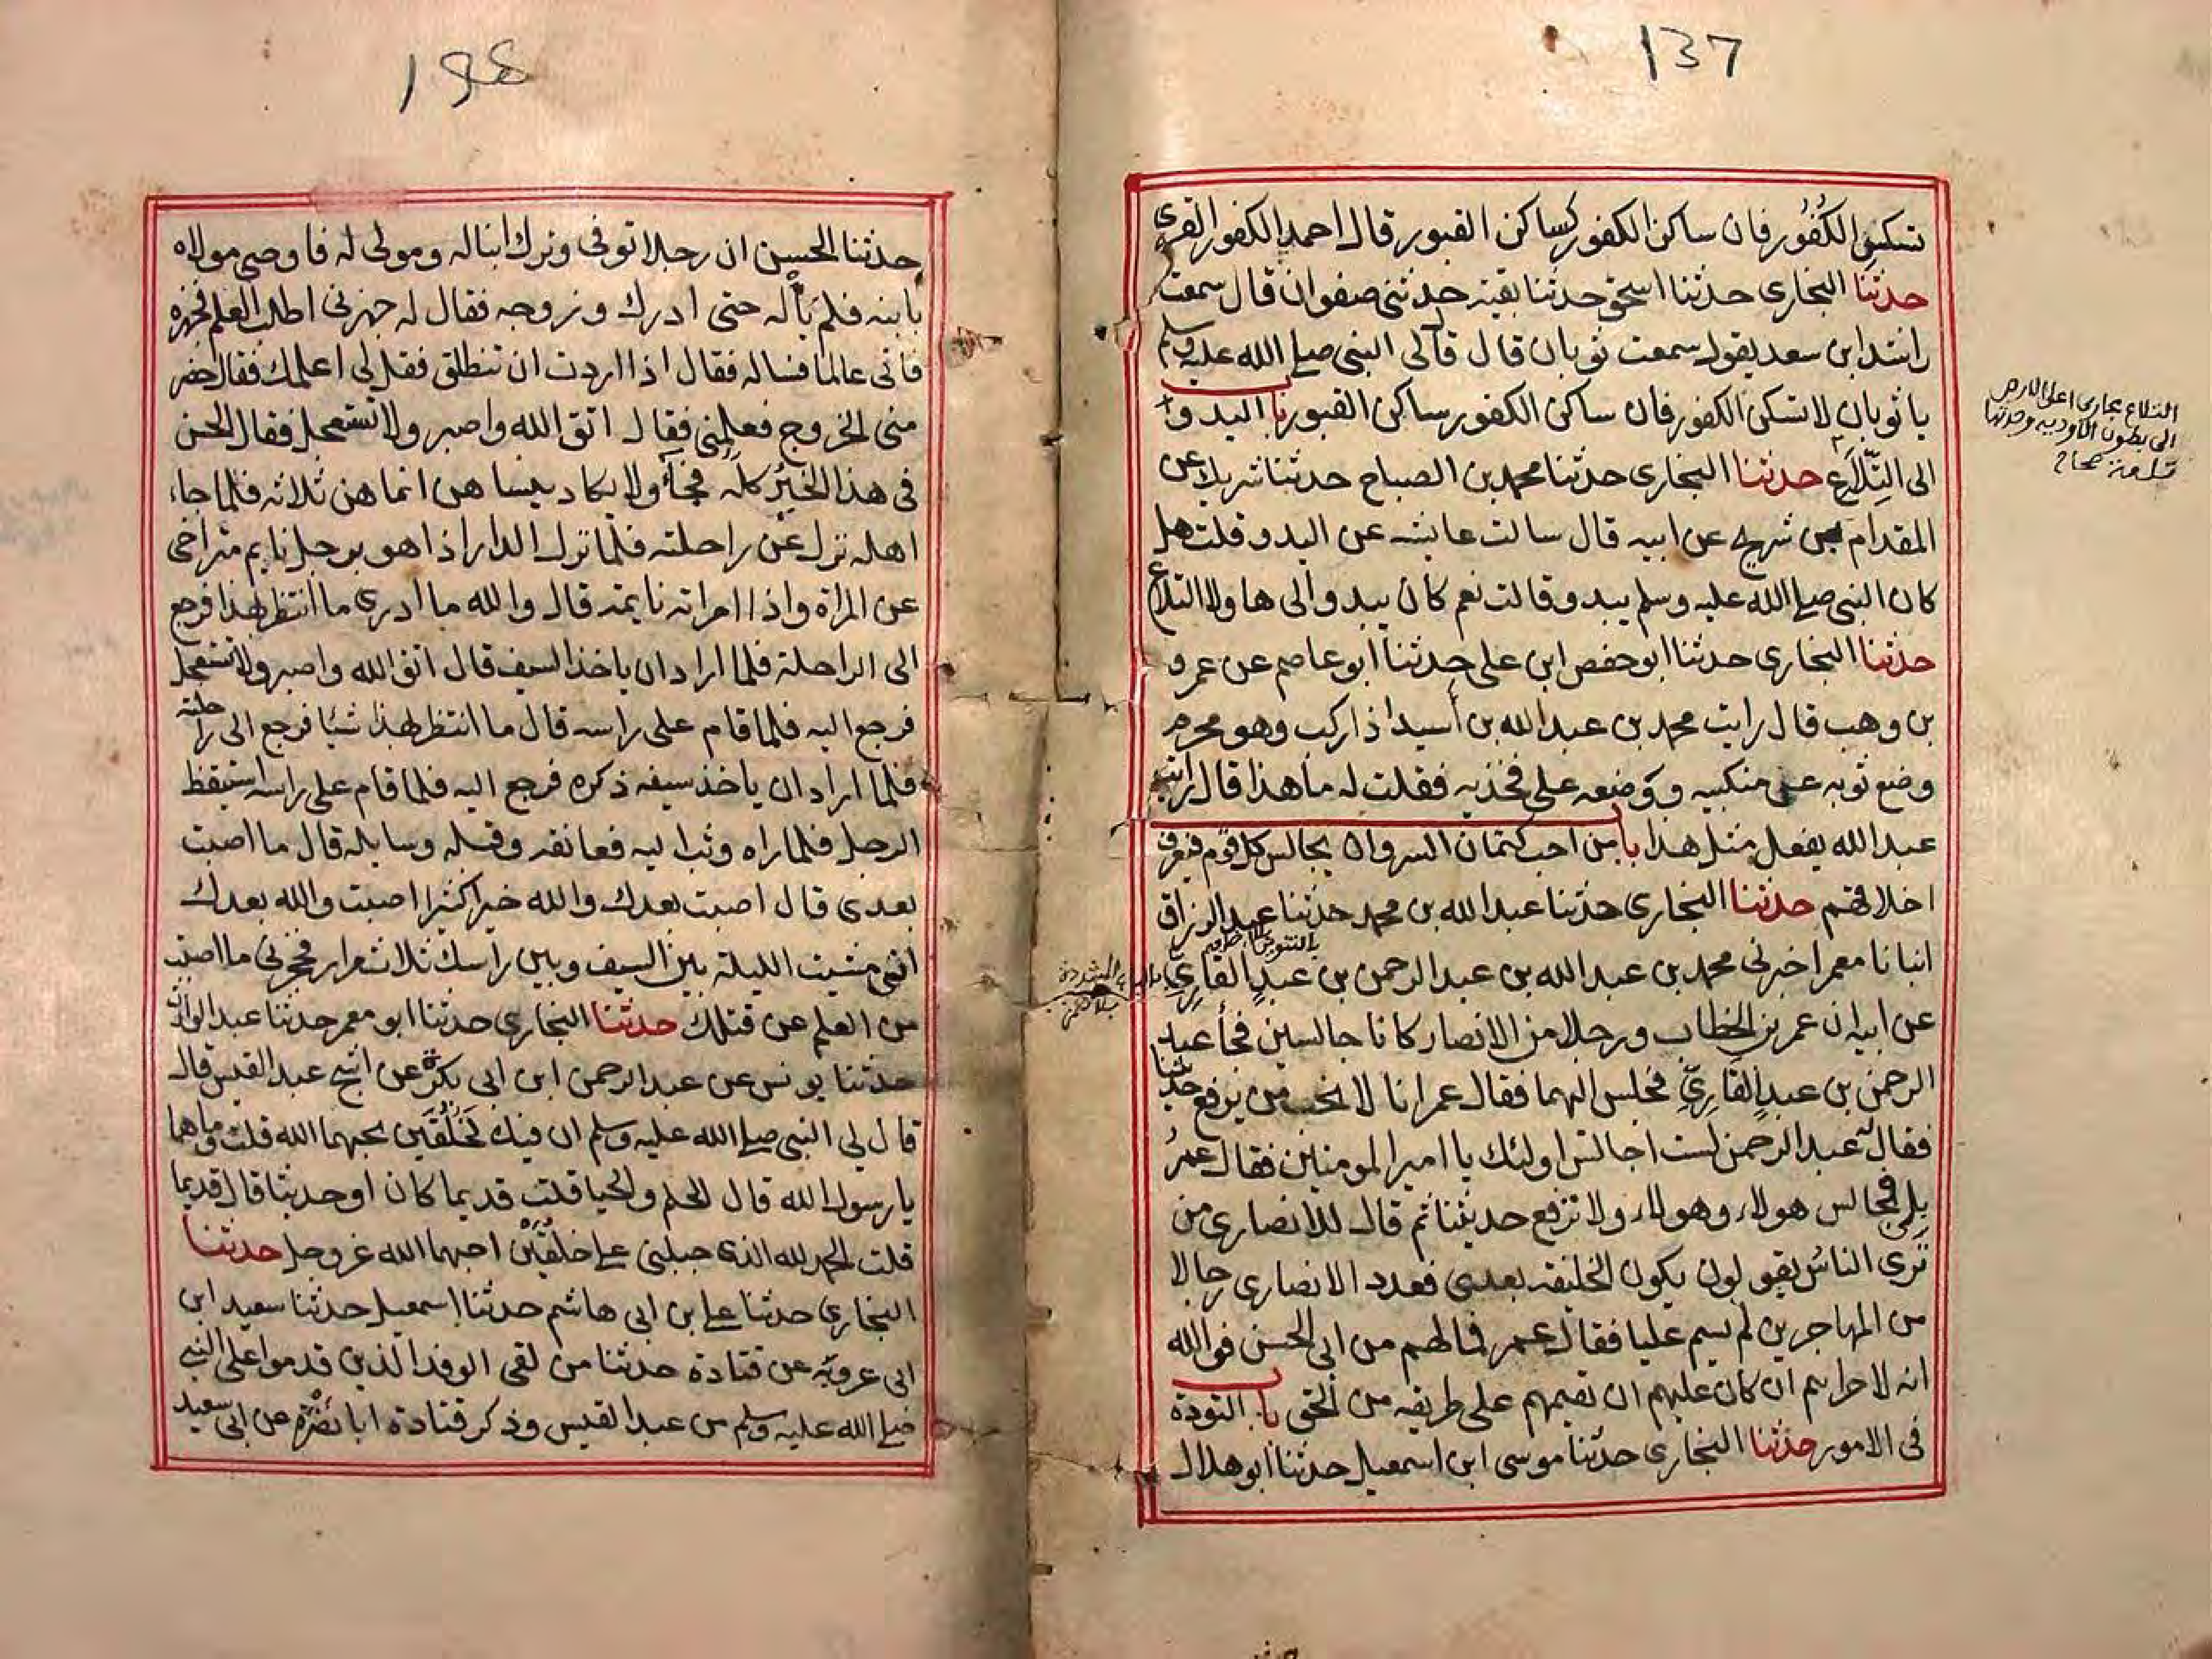 137
تسكن الكُفُور فان ساكن الكفور كساكن القبور قال احمد الكفور القرى
حدثنا البخارى حدثنا اسحق حدثنا بقية حدثنى صفوان قال سمعت
راشد ابن سعد يقول سمعت ثوبان قال قال لى النبى صلى الله عليه وسلم
يا ثوبان لا تسكن الكفور فان ساكن الكفور كساكن القبور باب البدو
الى التِّلَاع حدثنا البخارى حدثنا محمد بن الصباح حدثنا شريك عن
المقدام بن شريح عن ابيه قال سالت عايشه عن البدو قلت هل
كان النبى صلى الله عليه وسلم يبدو قالت نعم كان يبدو الى هاولا التلاع
حدثنا البخارى حدثنا ابو حفص ابن على حدثنا ابو عاصم عن عمرو
بن وهب قال رايت محمد بن عبد الله بن أسيد اذا ركب وهو محرم
وضع ثوبه عن منكبيه ووضعه على فخذيه فقلت له ما هذا قال رايت
عبد الله يفعل مثل هذا باب من احب كتمان السر وان يجالس كل قوم فيعرف
اخلاقهم حدثنا البخارى حدثنا عبد الله بن محمد حدثنا عبد الرزاق
انبانا معمر اخبرنى محمد بن عبد الله بن عبد الرحمن بن عبدٍ القارِيّ
عن ابيه ان عمر بن الخطاب ورجلا من الانصار كانا جالسين فجأ عبد
الرحمن بن عبدٍ القَارِيّ فجلس اليهما فقال عمر انا لا نحب من يرفع حديثنا
فقال له عبد الرحمن لست اجالس اولئك يا امير المومنين فقال عمرُ
بلى فجالس هولاء وهولاء ولا ترفع حديثنا ثم قال للانصارى من
تَرى الناسُ يقولون يكون الخليفة بعدى فعدد الانصارى رجالا
من المهاجرين لم يسم عليا فقال عمر فما لهم من ابى الحسن فوالله
انه لاحراهم ان كان عليهم ان يقيمهم على طريقه من الحق باب التودة
فى الامور حدثنا البخارى حدثنا موسى ابن اسمعيل حدثنا ابو هلال
التلاع مجارى اعلى الارض
الى بطون الاودية وحدتها
تلعة صحاح
حدثنا الحسن ان رجلا توفى وترك ابنا له ومولى له فاوصى مولاه
بابنه فلم يَأله حتى ادرك وزوجه فقال له جهزنى اطلب العلم فجهزه
فاتى عالما فساله فقال اذا اردت ان تنطلق فقل لى اعلمك فقال حضر
منى الخروج فعلمنى فقال اتق الله واصبر ولا تستعجل فقال الحسن
فى هذا الخيرُ كله فجأ ولا يكاد ينساهن انما هن ثلاثه فلما جاء
اهله نزل عن راحلته فلما نزل الدار اذا هو برجل نايم متراخى
عن المراة واذا امراته نايمة قال والله ما ادرى ما انتظر بهذا فرجع
الى الراحلة فلما اراد ان ياخذ السيف قال اتق الله واصبر ولا تستعجل
فرجع اليه فلما قام على راسه قال ما انتظر بهذا شيًا فرجع الى راحلته
فلما اراد ان ياخذ سيفه ذكره فرجع اليه فلما قام على راسه استيقظ
الرجل فلما راه وثب اليه فعانقه وقبله وسايله قال ما اصبت
بعدى قال اصبت بعدك والله خيرا كثيرا اصبت والله بعدك
انى مشيت الليلة بين السيف وبين راسك ثلاث مرار فحجزنى ما اصبت
من العلم عن قتلك حدثنا البخارى حدثنا ابو معمر حدثنا عبد الوارث
حدثنا يونس عن عبد الرحمن ابن ابى بكرة عن اشج عبد القيس قال
قال لى النبى صلى الله عليه وسلم ان فيك لَخُلُقَين يحبهما الله قلت وما هما
يا رسول الله قال الحلم والحيا قلت قديما كان او حديثا قال قديما
قلت الحمد لله الذى جبلنى على خلقين احبهما الله عز وجل حدثنا
البخارى حدثنا على ابن ابى هاشم حدثنا اسمعيل حدثنا سعيد ابن
ابى عروبة عن قتادة حدثنا من لقى الوفد الذين قدموا على النبى
صلى الله عليه وسلم من عبد القيس وذكر قتادة ابا نضرة عن ابى سعيد